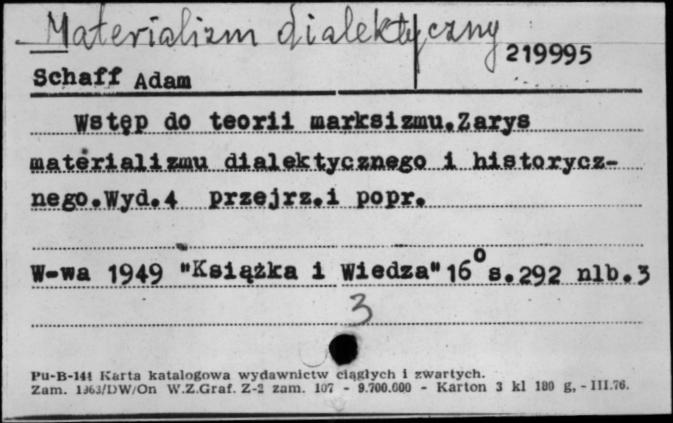 Materializm dialektyczny
219995
Schaff Adam
Wstęp do teorii marksizmu.Zarys
materializmu dialektycznego i historycz-
nego.Wyd.4 przejrz.i popr.
W-wa 1949 "Książka i Wiedza" 16° s.292 nlb.3
3
Pu-B-141 Karta katalogowa wydawnictw ciągłych i zwartych.
Zam. 1363/DW/On W.Z.Graf. Z-2 zam. 107 - 9.700.000 - Karton 3 kl 180 g, - III.76.